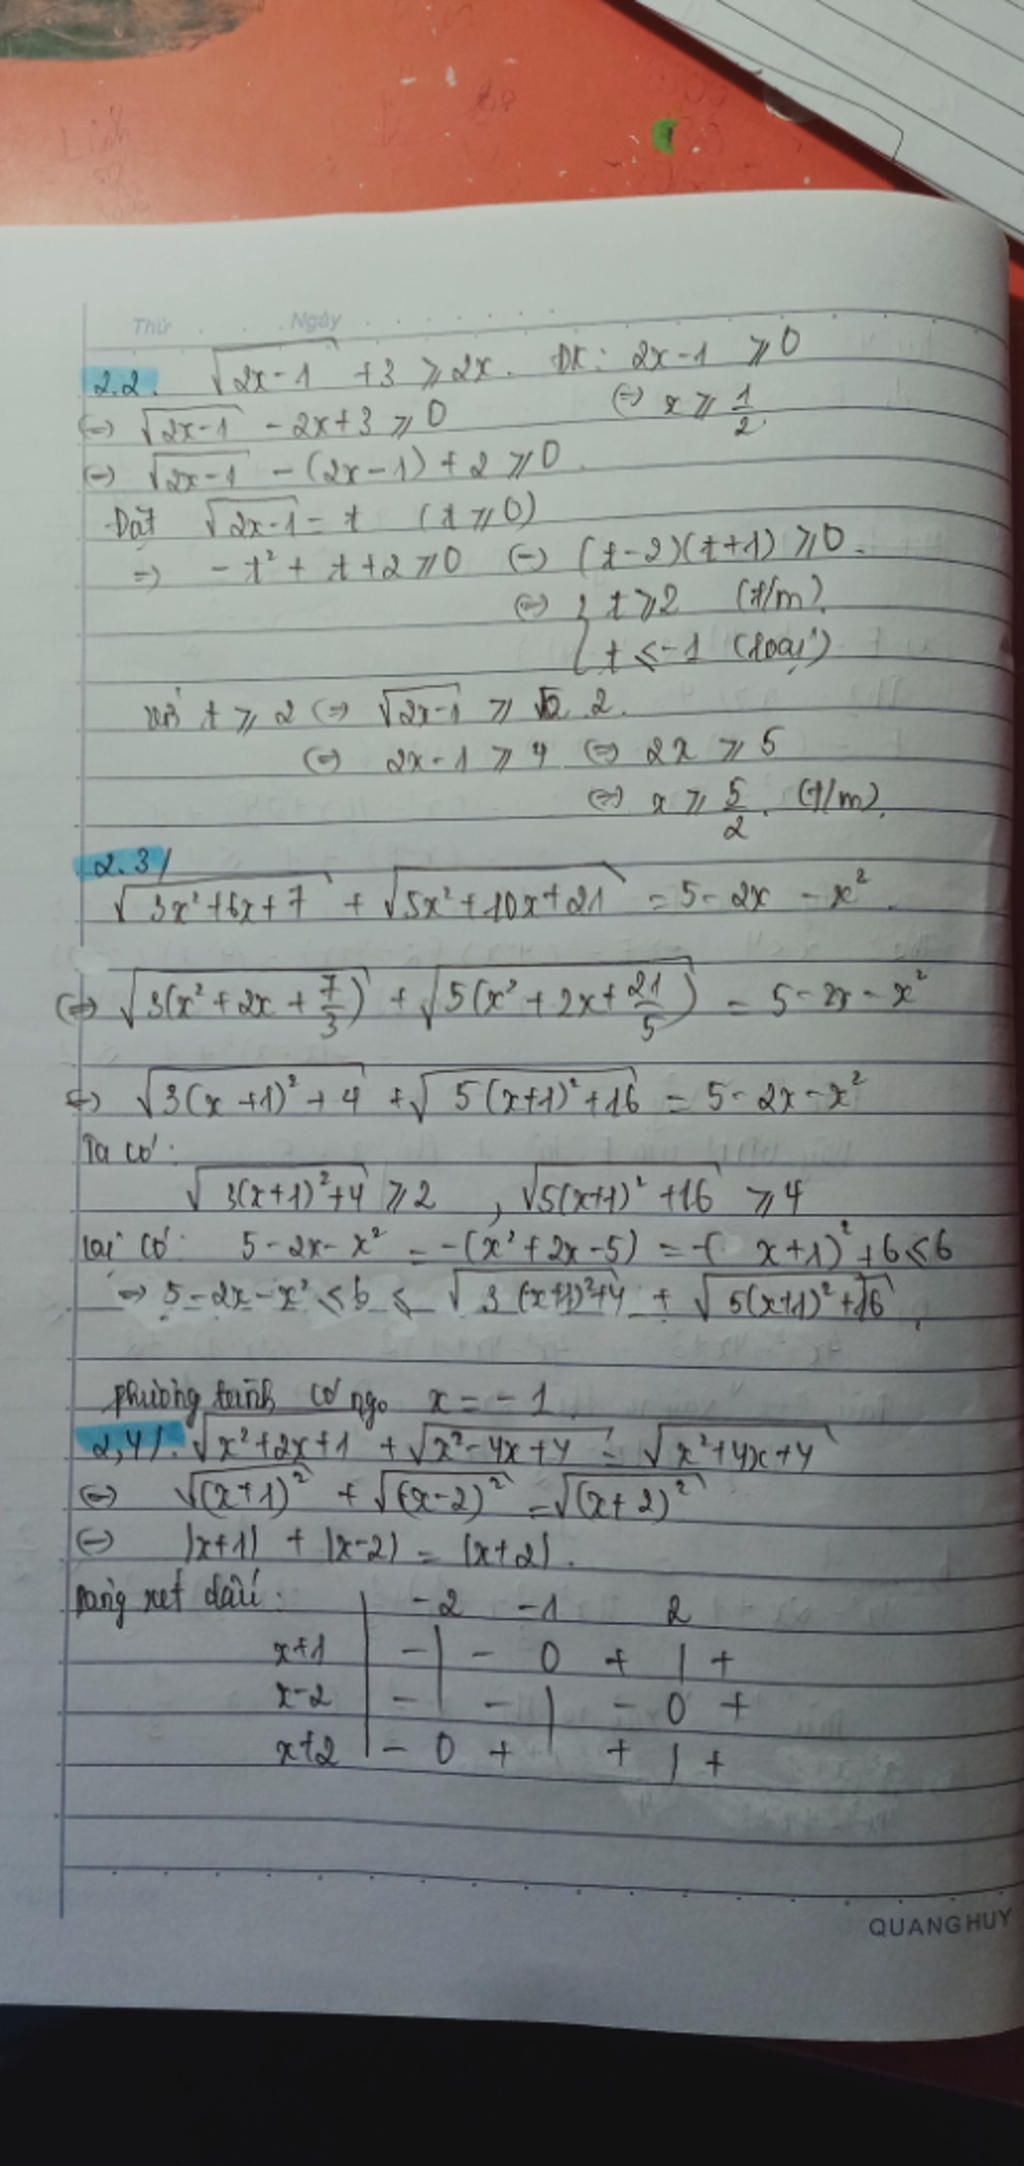 Thứ . . . Ngày . . . . . .
2.2. √(2x-1) +3 ⩾ 2x. ĐK: 2x-1 ⩾ 0
(=) √(2x-1) - 2x+3 ⩾ 0 (=) x ⩾ 1/2.
(=) √(2x-1) - (2x-1) + 2 ⩾ 0.
Đặt √(2x-1) = t (t ⩾ 0)
=) - t² + t + 2 ⩾ 0 (=) (t-2)(t+1) ⩾ 0.
(=) { t ⩾ 2 (t/m).
t ⩽ -1 (loại)
với t ⩾ 2 (=) √(2x-1) ⩾ 2.
(=) 2x-1 ⩾ 4 (=) 2x ⩾ 5
(=) x ⩾ 5/2. (t/m).
2.3/
√(3x²+6x+7) + √(5x²+10x+21) = 5-2x - x².
(=) √(3(x²+2x+7/3)) + √(5(x²+2x+21/5)) = 5-2x-x²
(=) √(3(x+1)²+4) + √(5(x+1)²+16) = 5-2x-x²
Ta có:
√(3(x+1)²+4) ⩾ 2 , √(5(x+1)²+16) ⩾ 4
lại có: 5-2x-x² = -(x²+2x-5) = -( x+1)²+6 ⩽ 6
=) 5-2x-x² ⩽ 6 ⩽ √(3(x+1)²+4) + √(5(x+1)²+16).
phương trình có ngo x = -1
2,4/. √(x²+2x+1) + √(x²-4x+4) = √(x²+4x+4)
(=) √((x+1)²) + √((x-2)²) = √((x+2)²)
(=) |x+1| + |x-2| = |x+2|.
bảng xét dấu: -2 -1 2
x+1 - | - 0 + | +
x-2 - | - | - 0 +
x+2 - 0 + | + | +
QUANG HUY